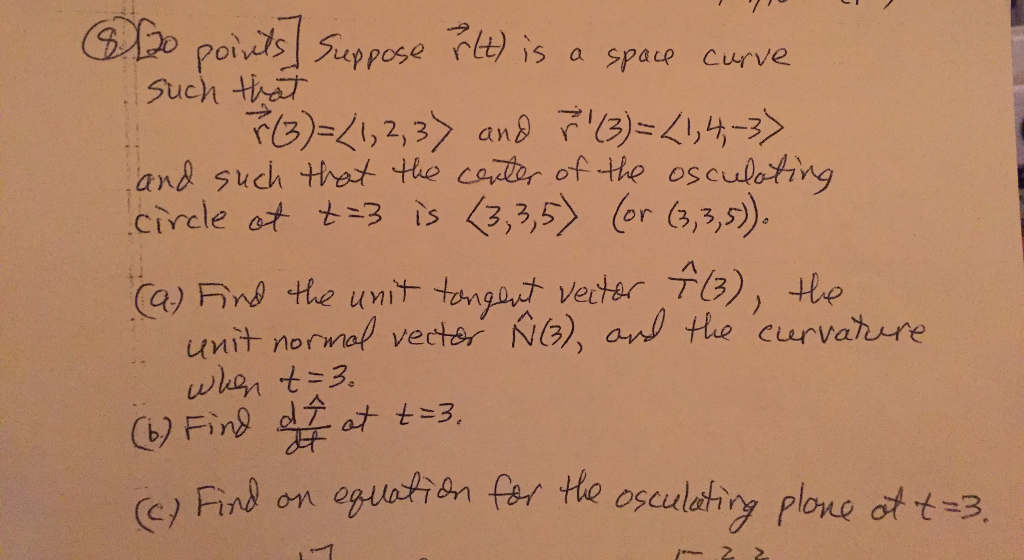 ⑧ [20 points] Suppose r⃗(t) is a space curve
such that
r⃗(3)=⟨1,2,3⟩ and r⃗'(3)=⟨1,4,-3⟩
and such that the center of the osculating
circle at t=3 is ⟨3,3,5⟩ (or (3,3,5)).
(a.) Find the unit tangent vector T̂(3), the
unit normal vector N̂(3), and the curvature
when t=3.
(b) Find dT̂/dt at t=3.
(c) Find an equation for the osculating plane at t=3.